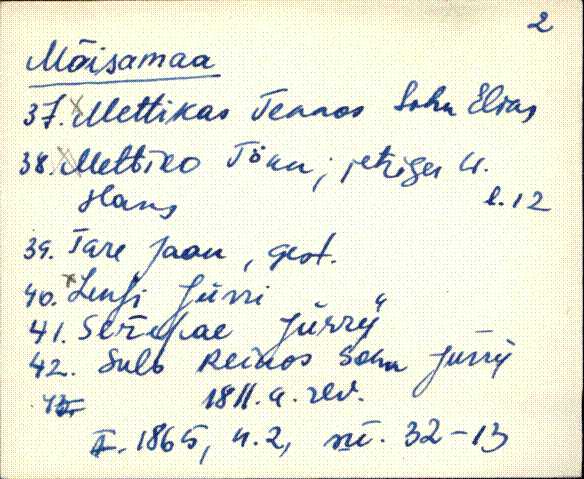 2
Mõisamaa
37. Mettikas Tennos Sohn Elias
38. Mettiko Tönu, jetziger W.
Hans l. 12
39. Tare Jaan, gest.
40. Jürri
41. Jürry
42. Sulo Reinos Sohn Jürry
1811. a. rev.
F. 1865, n. 2, nü. 32-13